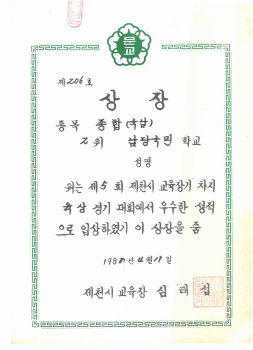 문교
제206호
상장
종목 종합(국남)
2위 남당국민 학교
성명
위는 제5회 제천시 교육장기 차지
육상 경기 대회에서 우수한 성적
으로 입상하였기 이 상장을 줌
년 4월 일
제천시 교육장 심 태 섭